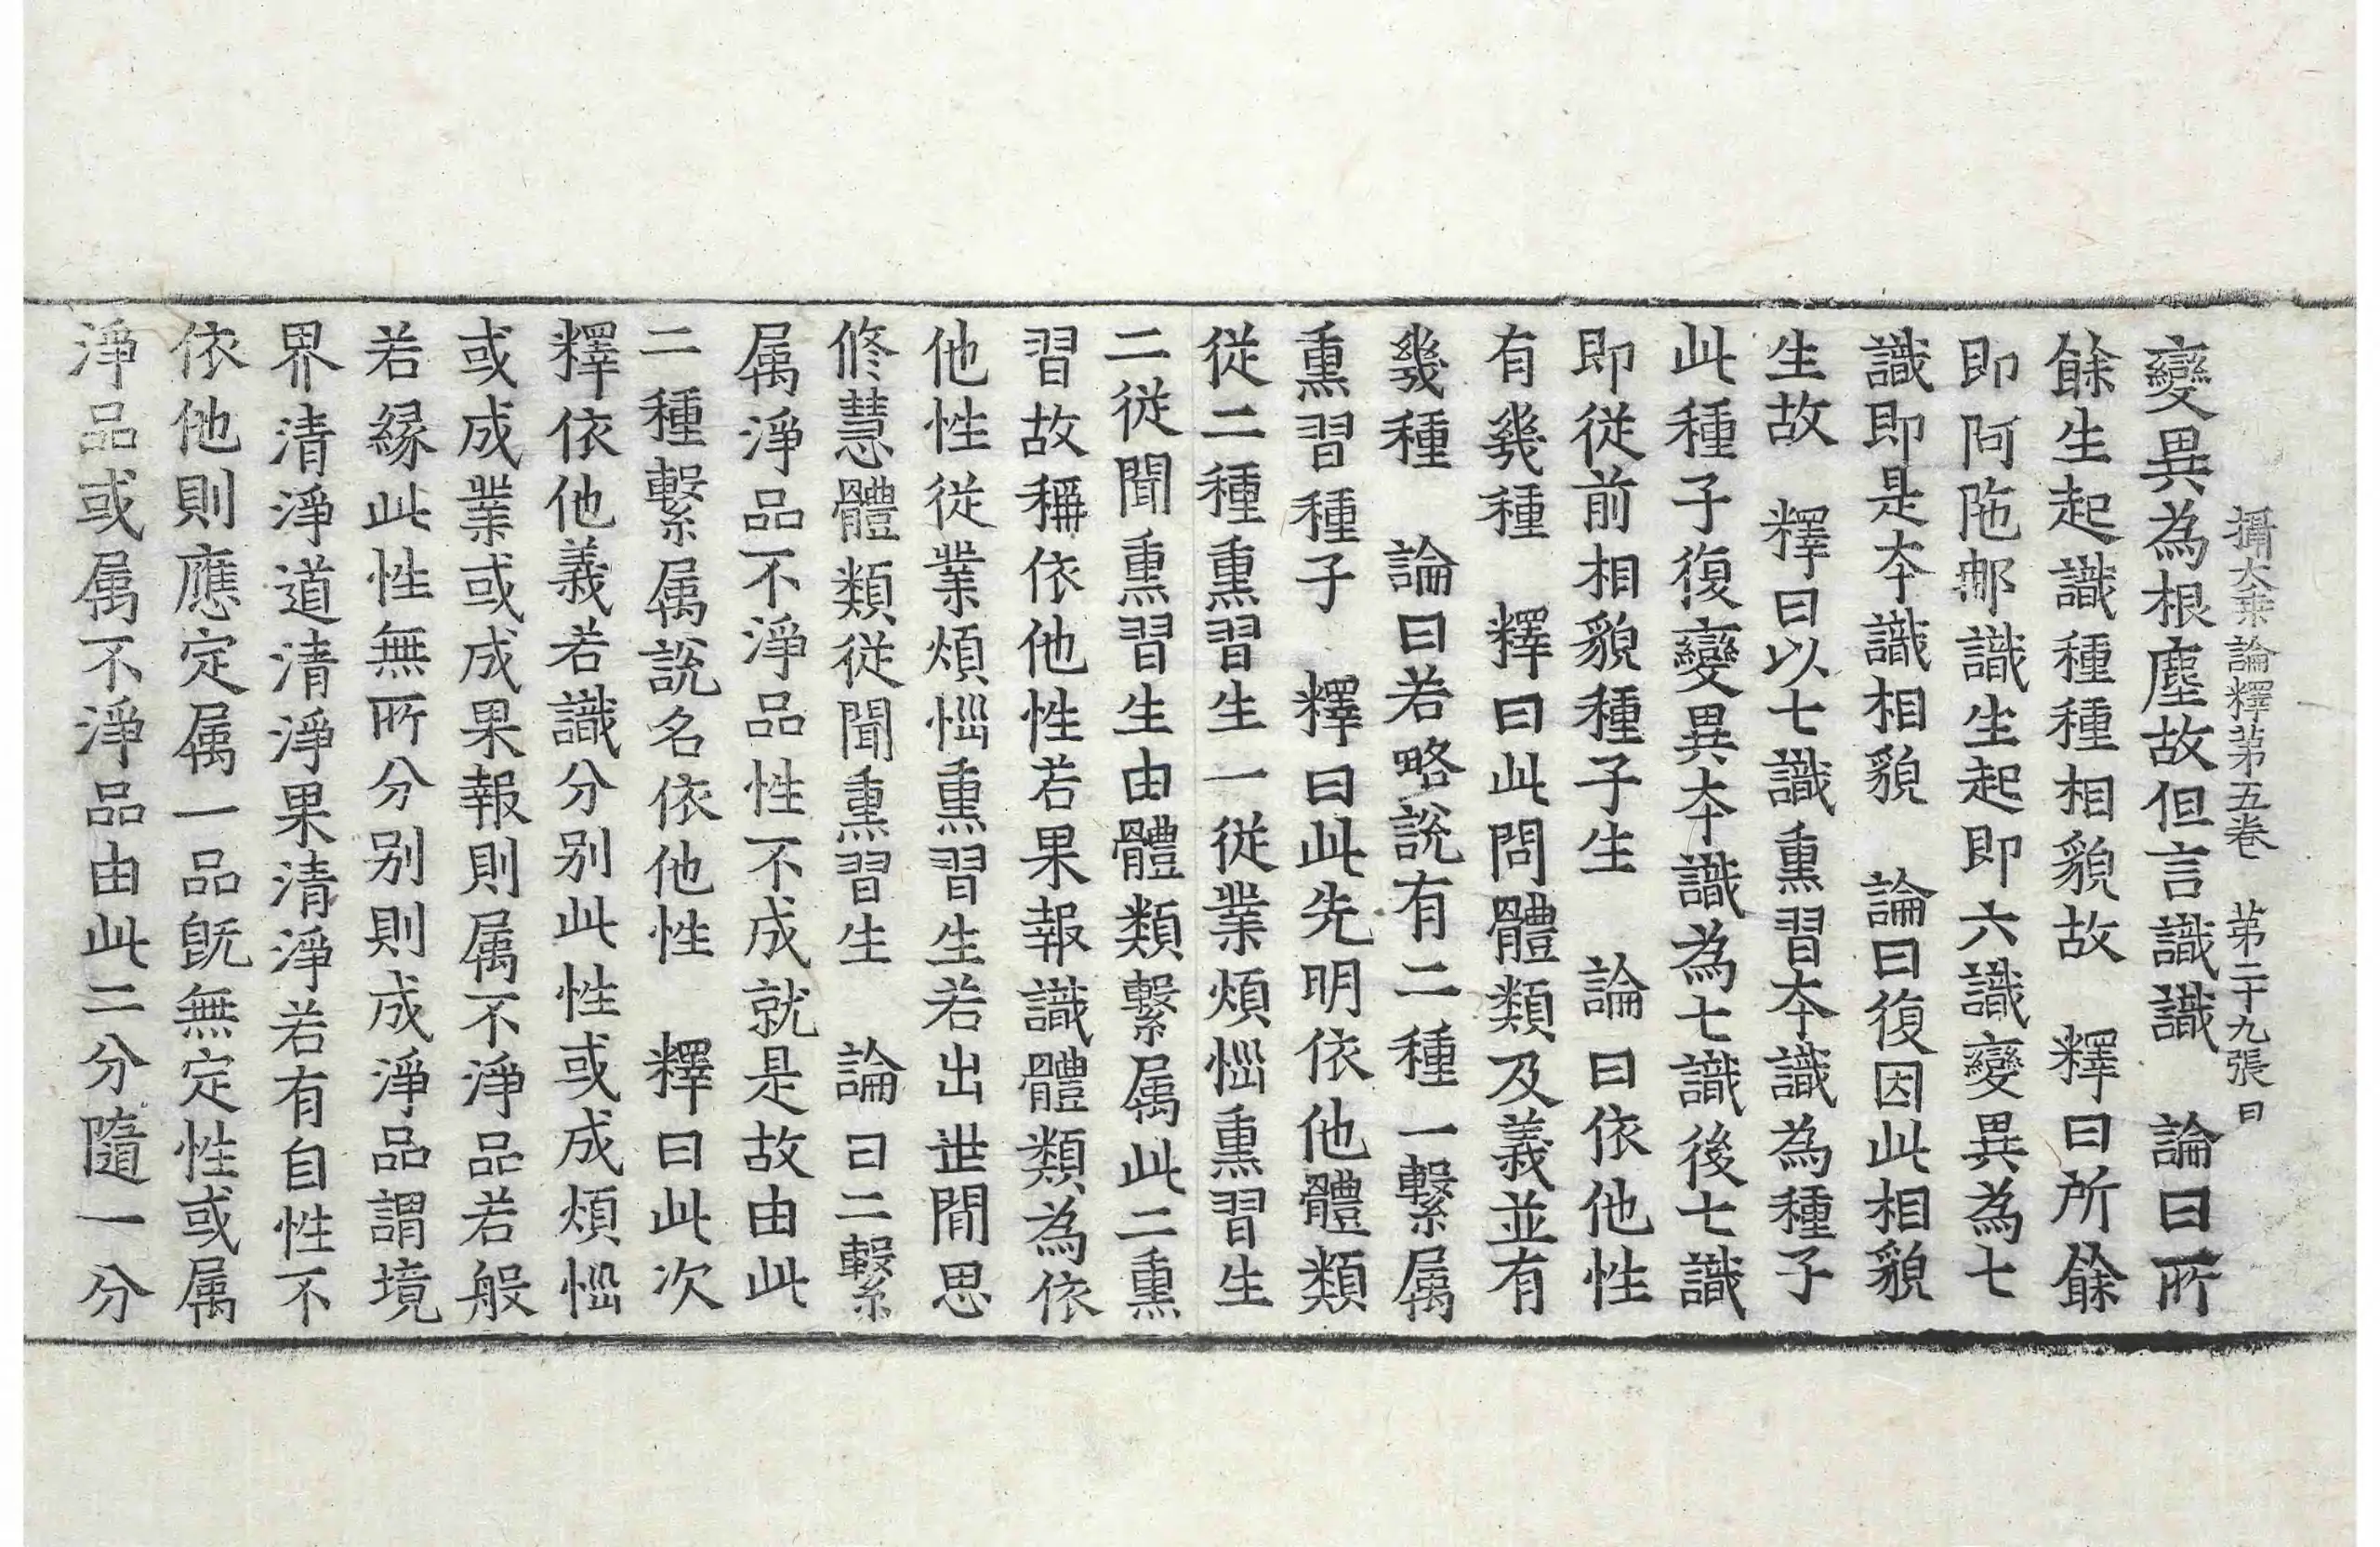 攝大乘論釋第五卷　第二十九張　曰
變異為根塵故但言識識　論曰所
餘生起識種種相貌故　釋曰所餘
即阿陁那識生起即六識變異為七
識即是本識相貌　論曰復因此相貌
生故　釋曰以七識熏習本識為種子
此種子復變異本識為七識後七識
即從前相貌種子生　論曰依他性
有幾種　釋曰此問體類及義並有
幾種　論曰若略說有二種一繫属
熏習種子　釋曰此先明依他體類
從二種熏習生一從業煩惱熏習生
二從聞熏習生由體類繫属此二熏
習故稱依他性若果報識體類為依
他性從業煩惱熏習生若出世間思
修慧體類從聞熏習生　論曰二繫
属淨品不淨品性不成就是故由此
二種繫属說名依他性　釋曰此次
釋依他義若識分別此性或成煩惱
或成業或成果報則属不淨品若般
若緣此性無所分別則成淨品謂境
界清淨道清淨果清淨若有自性不
依他則應定属一品旣無定性或属
淨品或属不淨品由此二分隨一分